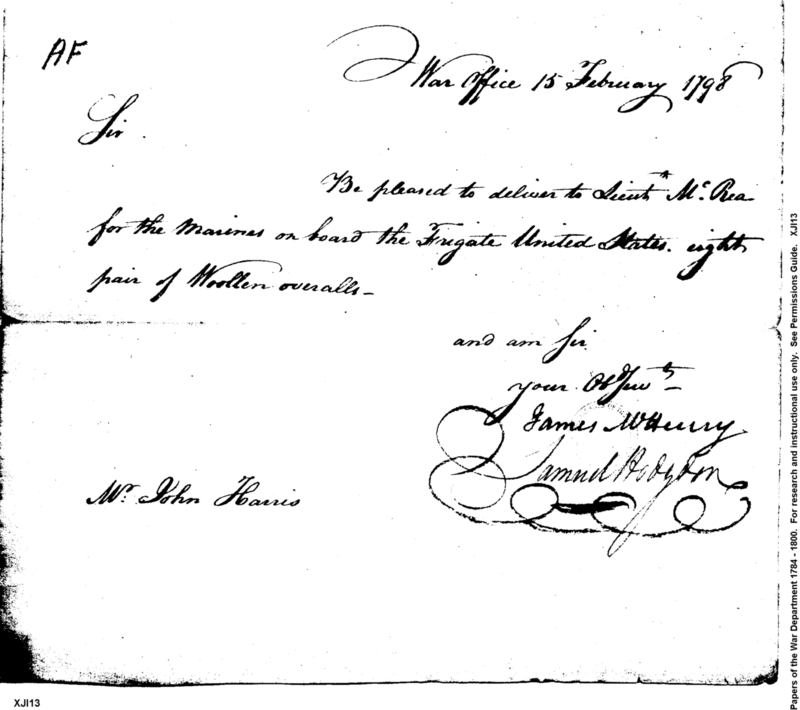 AF
War Office 15 February 1798
Sir
Be pleased to deliver to Lieut. Mc. Rea
for the Marines on board the Frigate United States. eight
pair of Woollen overalls_
and am Sir
your Ob Servt_
James McHenry
Samuel Hodgdon
Mr. John Harris
XJI13
Papers of the War Department 1784 - 1800. For research and instructional use only. See Permissions Guide. XJI13